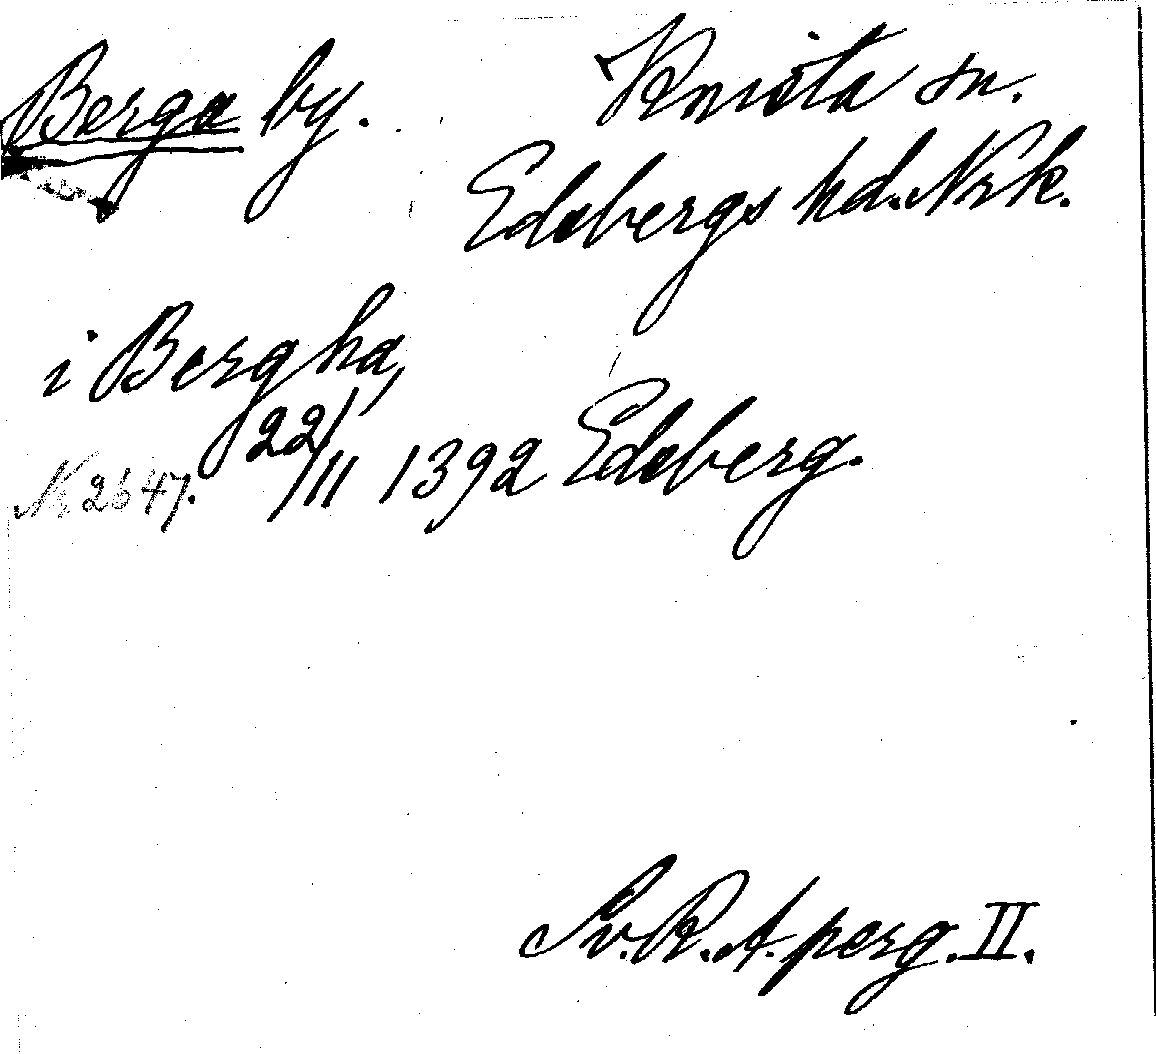 Berga by.
Knista sn.
Edsbergs hd. Nrk.
i Bergha,
Nr 2647. 22/11 1392 Edsberg.
Sv. R. A. perg. II.